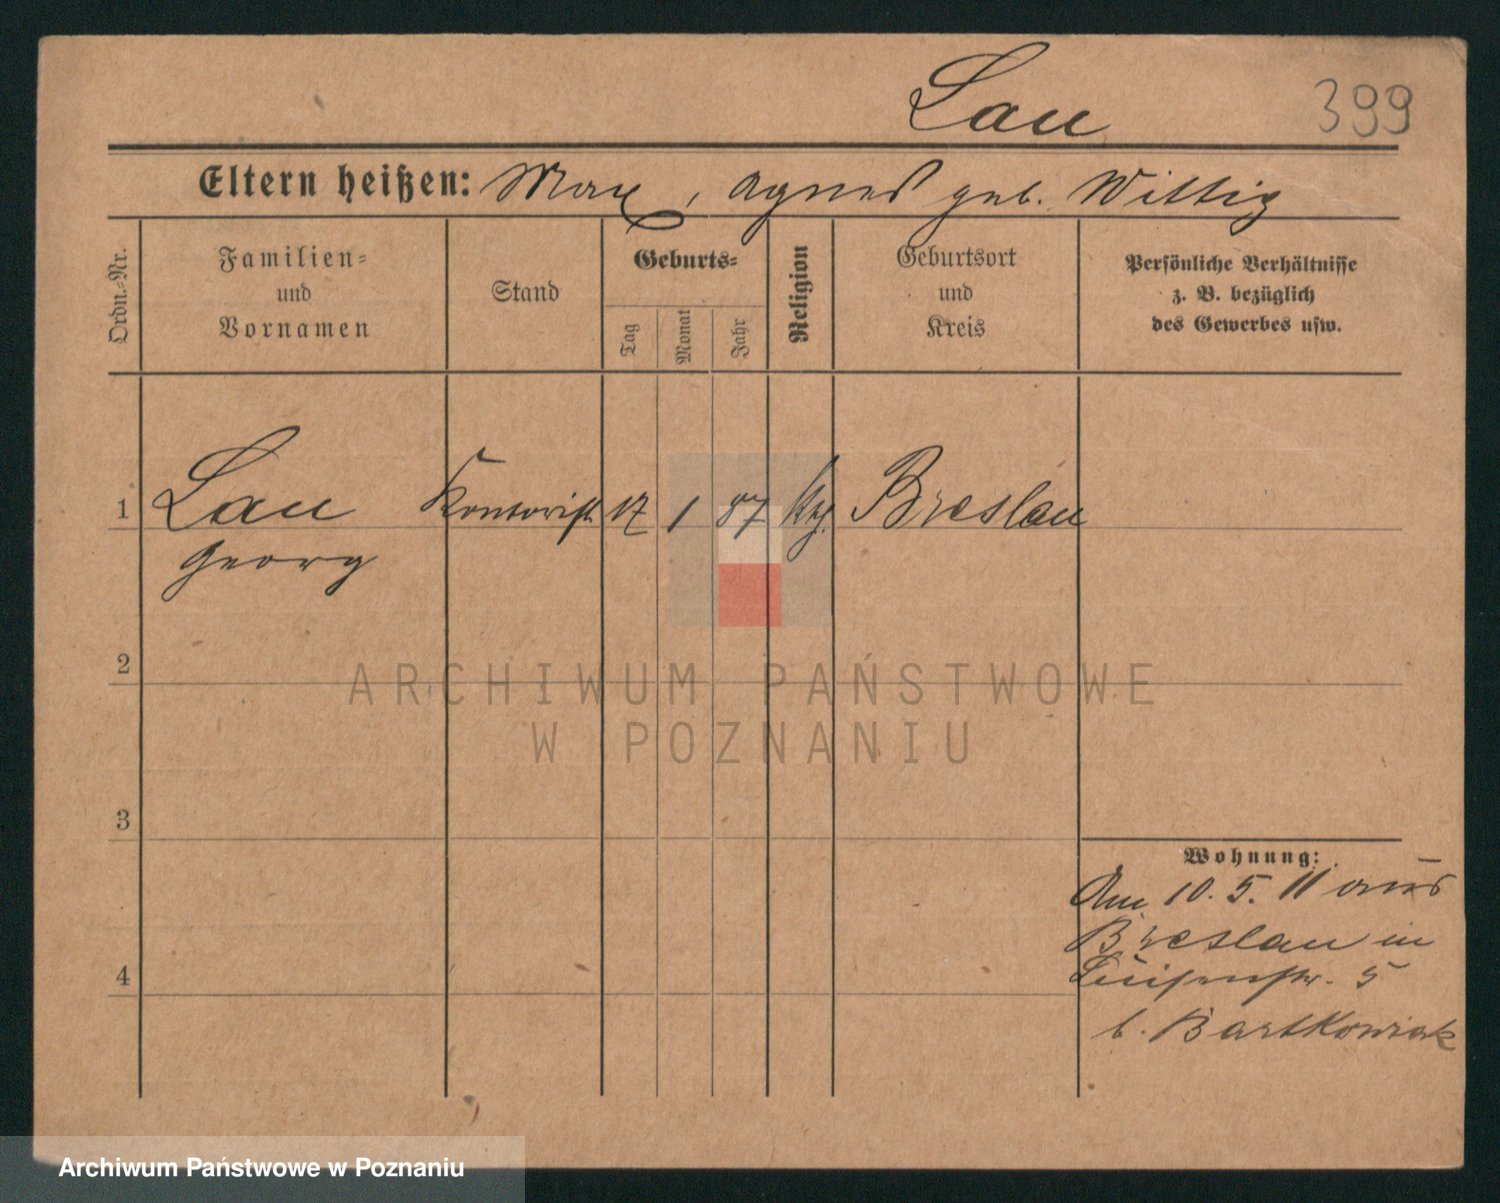 Lau
399
Eltern heißen: Max, Agnes geb. Wittig
Ordn.-Nr.
Familien-
und
Vornamen
Stand
Geburts-
Tag
Monat
Jahr
Religion
Geburtsort
und
Kreis
Persönliche Verhältnisse
z. B. bezüglich
des Gewerbes usw.
1 Lau Kontorist 17 1 87 Breslau
Georg
2
ARCHIWUM PAŃSTWOWE
W POZNANIU
3
Wohnung:
Am 10. 5. 11 aus
Breslau in
4
Luisenstr. 5
b. Bartkowiak
Archiwum Państwowe w Poznaniu